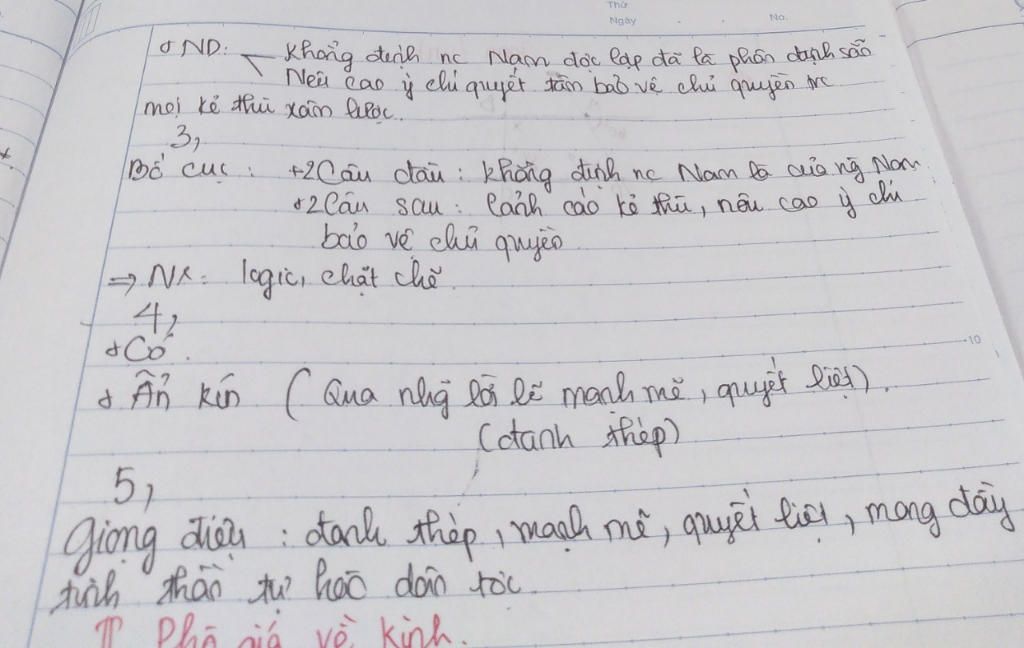 Thứ
Ngày . . No.
+ ND: Khẳng định nc Nam độc lập đã là phân định sẵn
Nêu cao ý chí quyết tâm bảo vệ chủ quyền trc
mọi kẻ thù xâm lược.
3,
Bố cục: +2 Câu đầu: khẳng định nc Nam là của ng Nam
+2 Câu sau: Cảnh cáo kẻ thù, nêu cao ý chí
bảo vệ chủ quyền
=> NX: logic, chặt chẽ.
4,
+ Có.
10
+ Ẩn kín (Qua nhg lời lẽ mạnh mẽ, quyết liệt).
(đanh thép)
5,
Giọng điệu: đanh thép, mạnh mẽ, quyết liệt, mang đầy
tinh thần tự hào dân tộc.
II Phò giá về kinh.